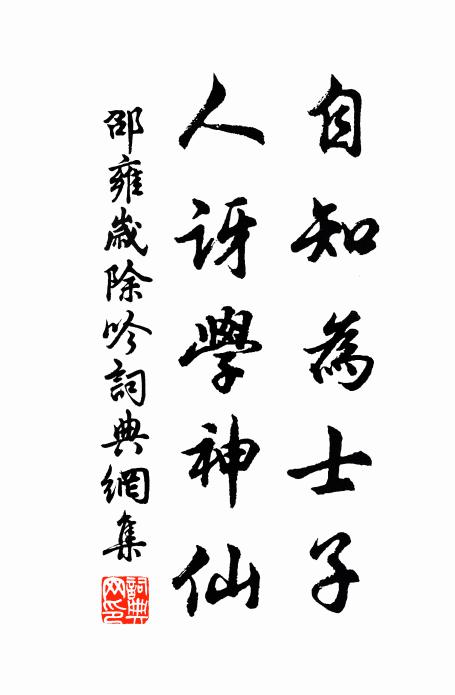 自知為士子
人訝學神仙
邵雍歲除吟詞典網集
詞典網印